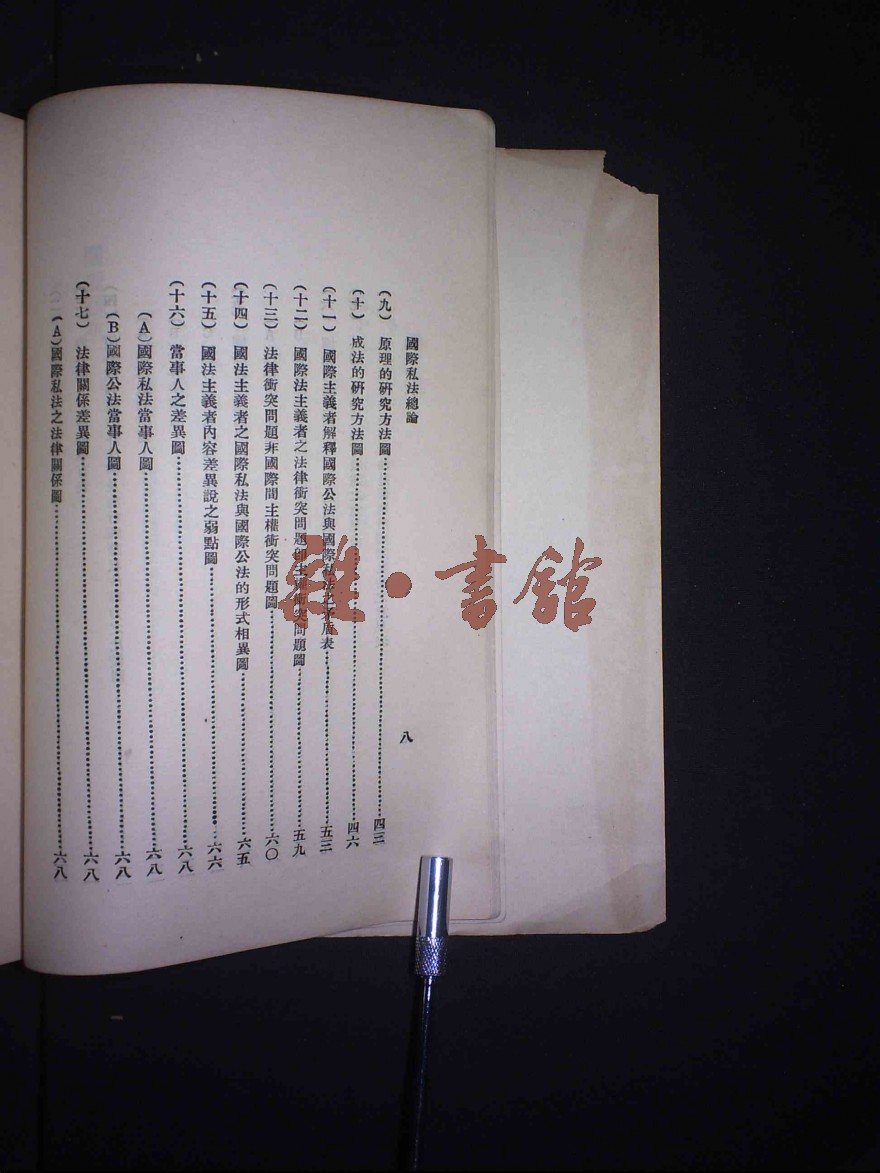 國際私法總論
八
(九) 原理的研究方法圖……四三
(十) 成法的研究方法圖……四六
(十一) 國際主義者解釋國際公法與國際私法之矛盾表……五三
(十二) 國際法主義者之法律衝突問題卽主權衝突問題圖……五九
(十三) 法律衝突問題非國際間主權衝突問題圖……六〇
(十四) 國法主義者之國際私法與國際公法的形式相異圖……六五
(十五) 國法主義者內容差異說之弱點圖……六六
(十六) 當事人之差異圖……六八
(A) 國際私法當事人圖……六八
(B) 國際公法當事人圖……六八
(十七) 法律關係差異圖……六八
(A) 國際私法之法律關係圖……六八
雜·書館